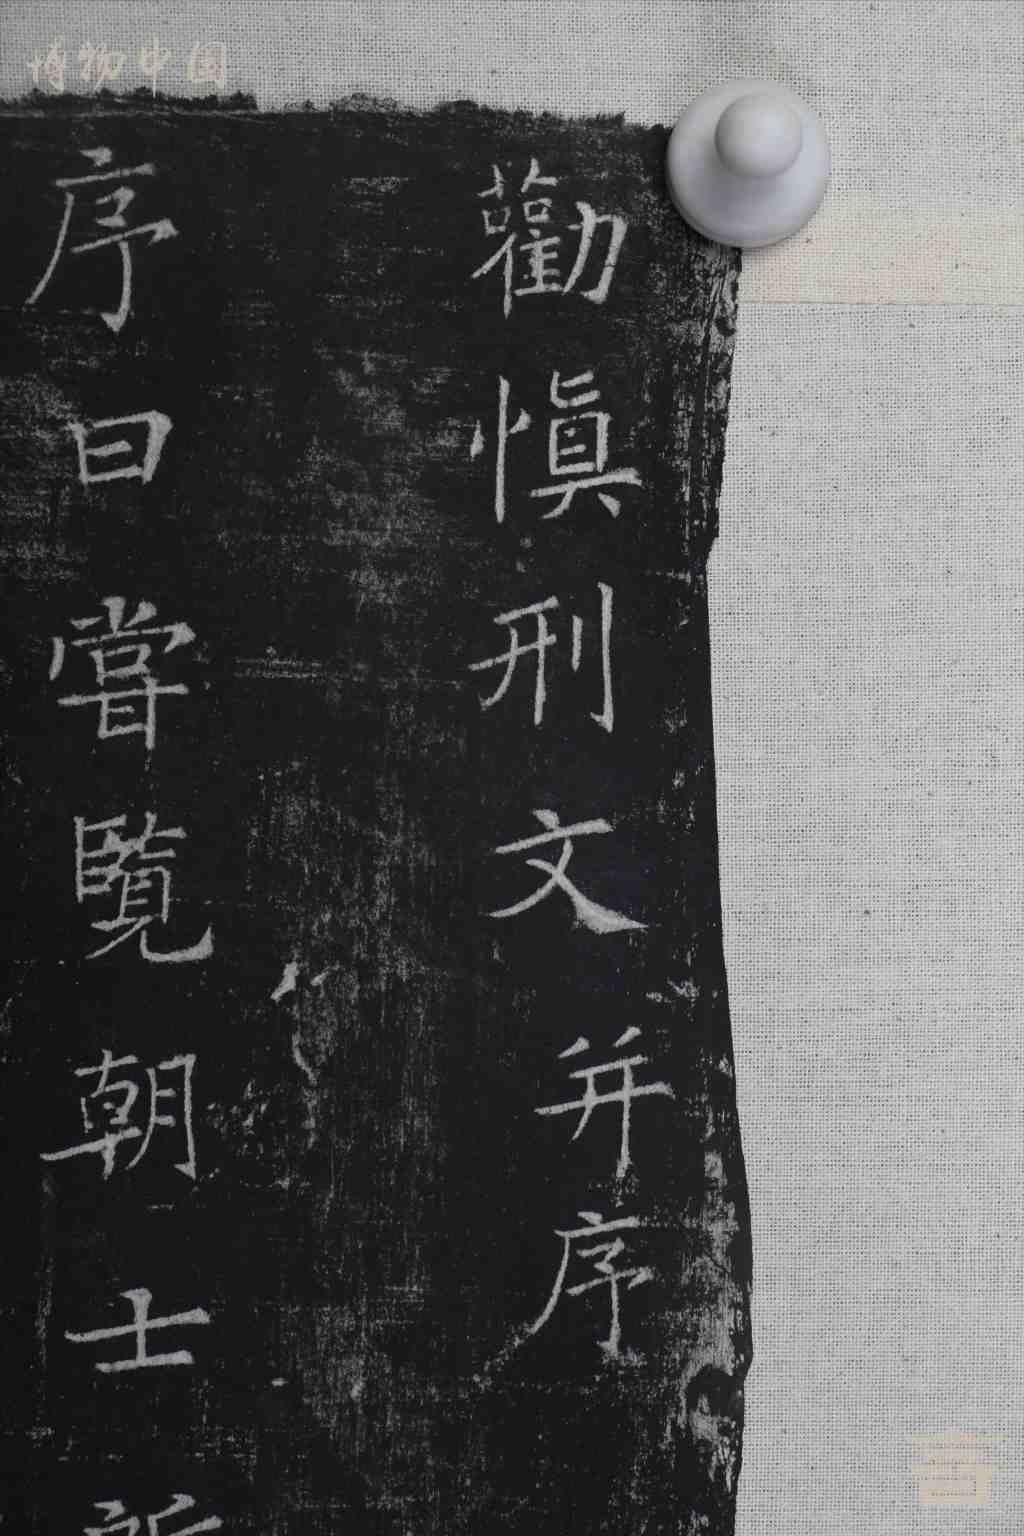 勸慎刑文并序
序曰嘗覽朝士所
博物中国